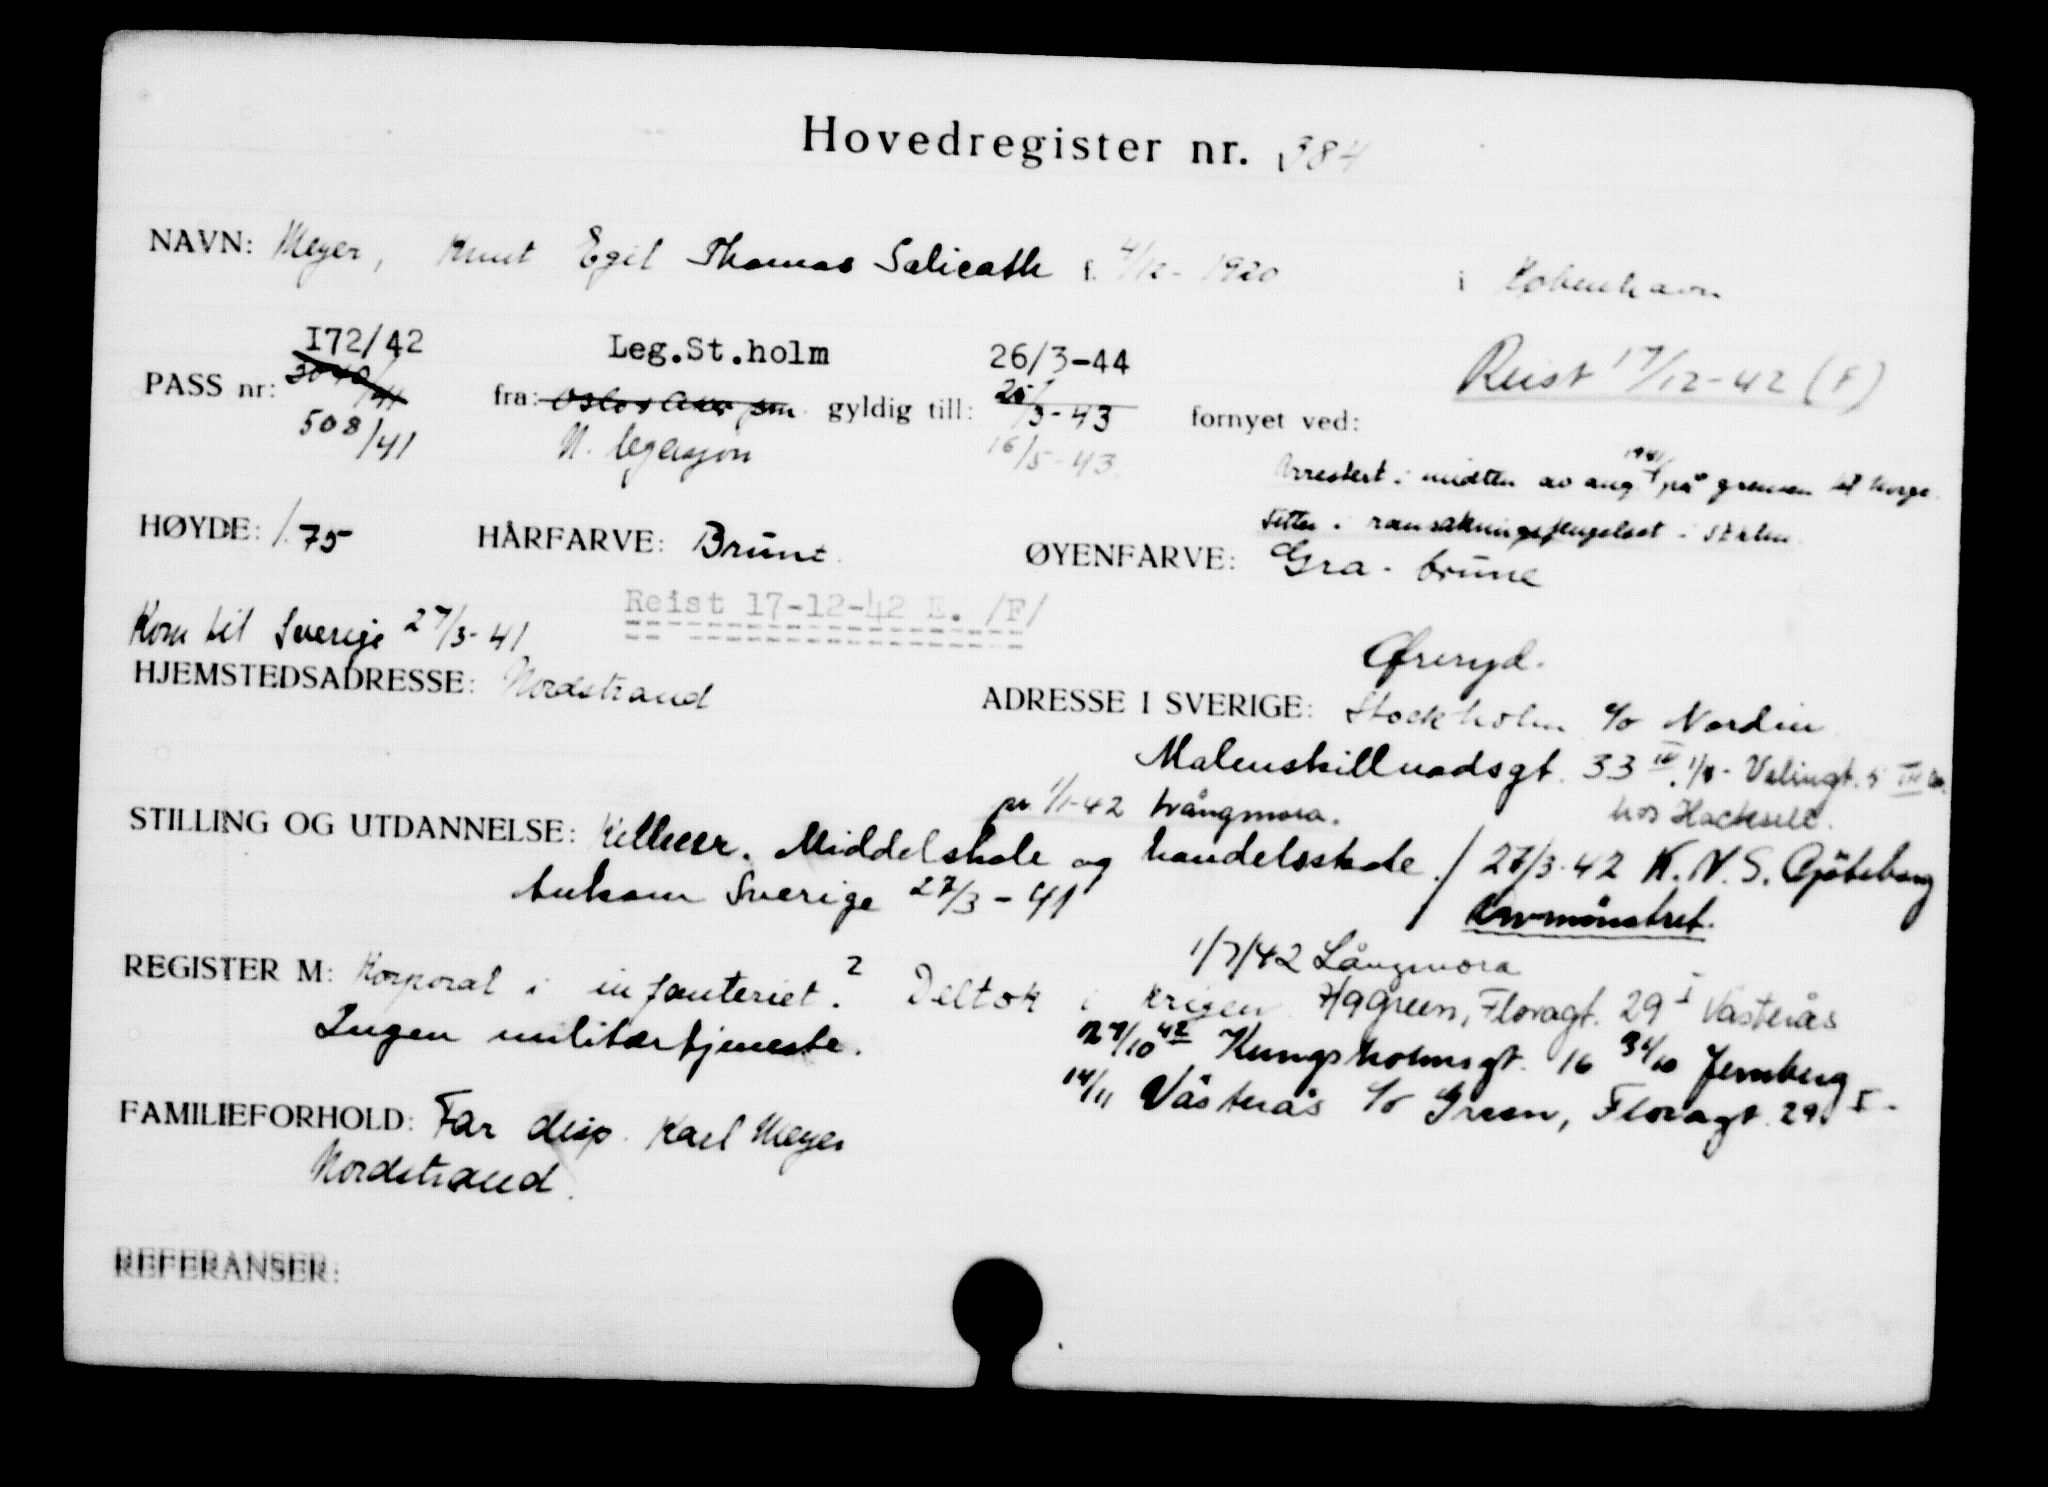 Hovedregister nr. 384
NAVN: Meyer, Knut Egil Thomas Salicath f. 4/12-1920 i København
172/42 Leg.St.holm 26/3-44 Reist 17/12-42 (F)
PASS nr: 3040/41 fra: Oslo gyldig till: 25/3-43 fornyet ved:
508/41 N. legasjon 16/5-43
Arrestert i midten av aug 1941 på grensen til Norge.
Sitter i ransakningsfengslet i Sthlm.
HØYDE: 1.75 HÅRFARVE: Brunt. ØYENFARVE: Grå-brune
Reist 17-12-42 E. /F/
Kom til Sverige 27/3-41
Øreryd.
HJEMSTEDSADRESSE: Nordstrand ADRESSE I SVERIGE: Stockholm c/o Nordin
Malmskillnadsgt. 33 IV. 1/8- Valingt. 5 III
pr. 1/1-42 Långmora. hos Hacksell.
STILLING OG UTDANNELSE: Kellner. Middelskole og handelsskole. / 27/3-42 K.N.S. Göteborg
Ankom Sverige 27/3-41 / avmönstret.
1/7/42 Långmora
REGISTER M: Korporal i infanteriet. 2 Deltok i krigen Häggreen, Floragt. 29 I Västerås
Ingen militærtjeneste. 27/10 42 Kungsholmsgt. 16 31/10 Jernberg
14/11 Västerås c/o Green, Floragt. 29 I.
FAMILIEFORHOLD: Far disp. Karl Meyer
Nordstrand.
REFERANSER: